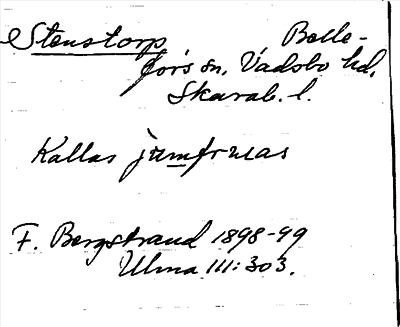 Stenstorp Belle-
fors sn, Vadsbo hd,
Skarab. l.
Kallas jumfruas
F. Bergstrand 1898-99
Ulma 111:303.